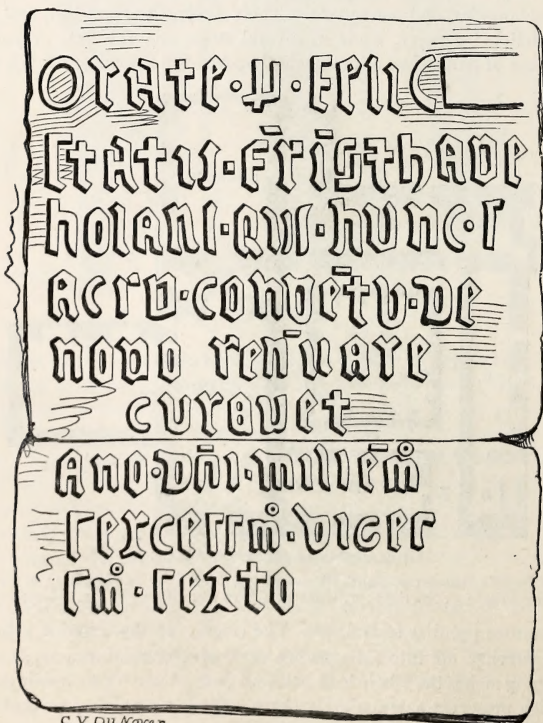 Orate·p·Felic
Statu·Fr̄īsthade
holani·Qui·hunc·S
acru·convētu·de
novo ren̄uare
curavet
Ano·Dn̄i·millēm̊
sexcessm̊·viges
sm̊·sexto